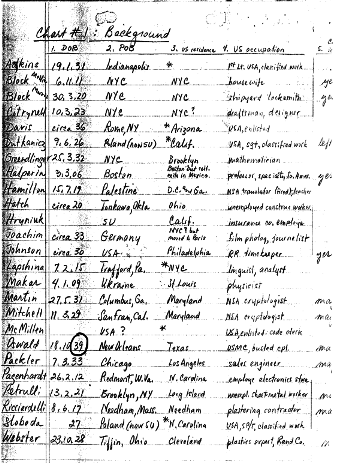 Chart #1: Background
1. DOB 2. POB 3. US residence 4. US occupation 5.
Adkins 19.1.31 Indianapolis * 1st Lt. USA, classified work
Block 6.11.11 NYC NYC housewife ye
Block 30.3.20 NYC NYC shipyard locksmith ye
Citrynell 10.3.23 NYC NYC draftsman, designer
Davis circa 36 Rome, NY * Arizona USA, enlisted
Dutkanicz 9.6.26 Poland (now SU) * Calif. USA, sgt, classified work left
Greendlinger 25.3.32 NYC Brooklyn mathematician
Halperin 3.06 Boston Boston but in Mexico. professor, specialty, So. Amer. yes
Hamilton 15.7.19 Palestine D.C. Ga. NSA translator
Hatch circa 20 Tonkawa, Okla Ohio unemployed construc. worker
Hryniuk SU Calif. insurance co. employee
Joachim circa 33 Germany NYC? but moved to Paris film photog, journalist
Johnson circa 30 USA Philadelphia RR timekeeper yes
Lapshina 7.2.15 Trafford, Pa. * NYC linguist, analyst
Makar 4.1.09 Ukraine St. Louis physicist
Martin 27.5.31 Columbus, Ga. Maryland NSA cryptologist ma
Mitchell 11.3.29 San Fran, Cal. Maryland NSA cryptologist ma
McMillen USA ? * USA, enlisted code clerk
Oswald 18.10.39 New Orleans Texas USMC, busted epl. ma
Packler 7.3.33 Chicago Los Angeles sales engineer ma
Parenhardt 26.2.12 Piedmont, W.Va. N. Carolina employe electronics store
Petrulli 13.2.21 Brooklyn, NY Long Island unempl. sheet metal worker m
Ricciardelli 8.6.17 Needham, Mass. Needham plastering contractor ma
Sloboda 27 Poland (now SU) * N. Carolina USA, sp/5, classified work
Webster 23.10.28 Tiffin, Ohio Cleveland plastics expert, Rand Co. m